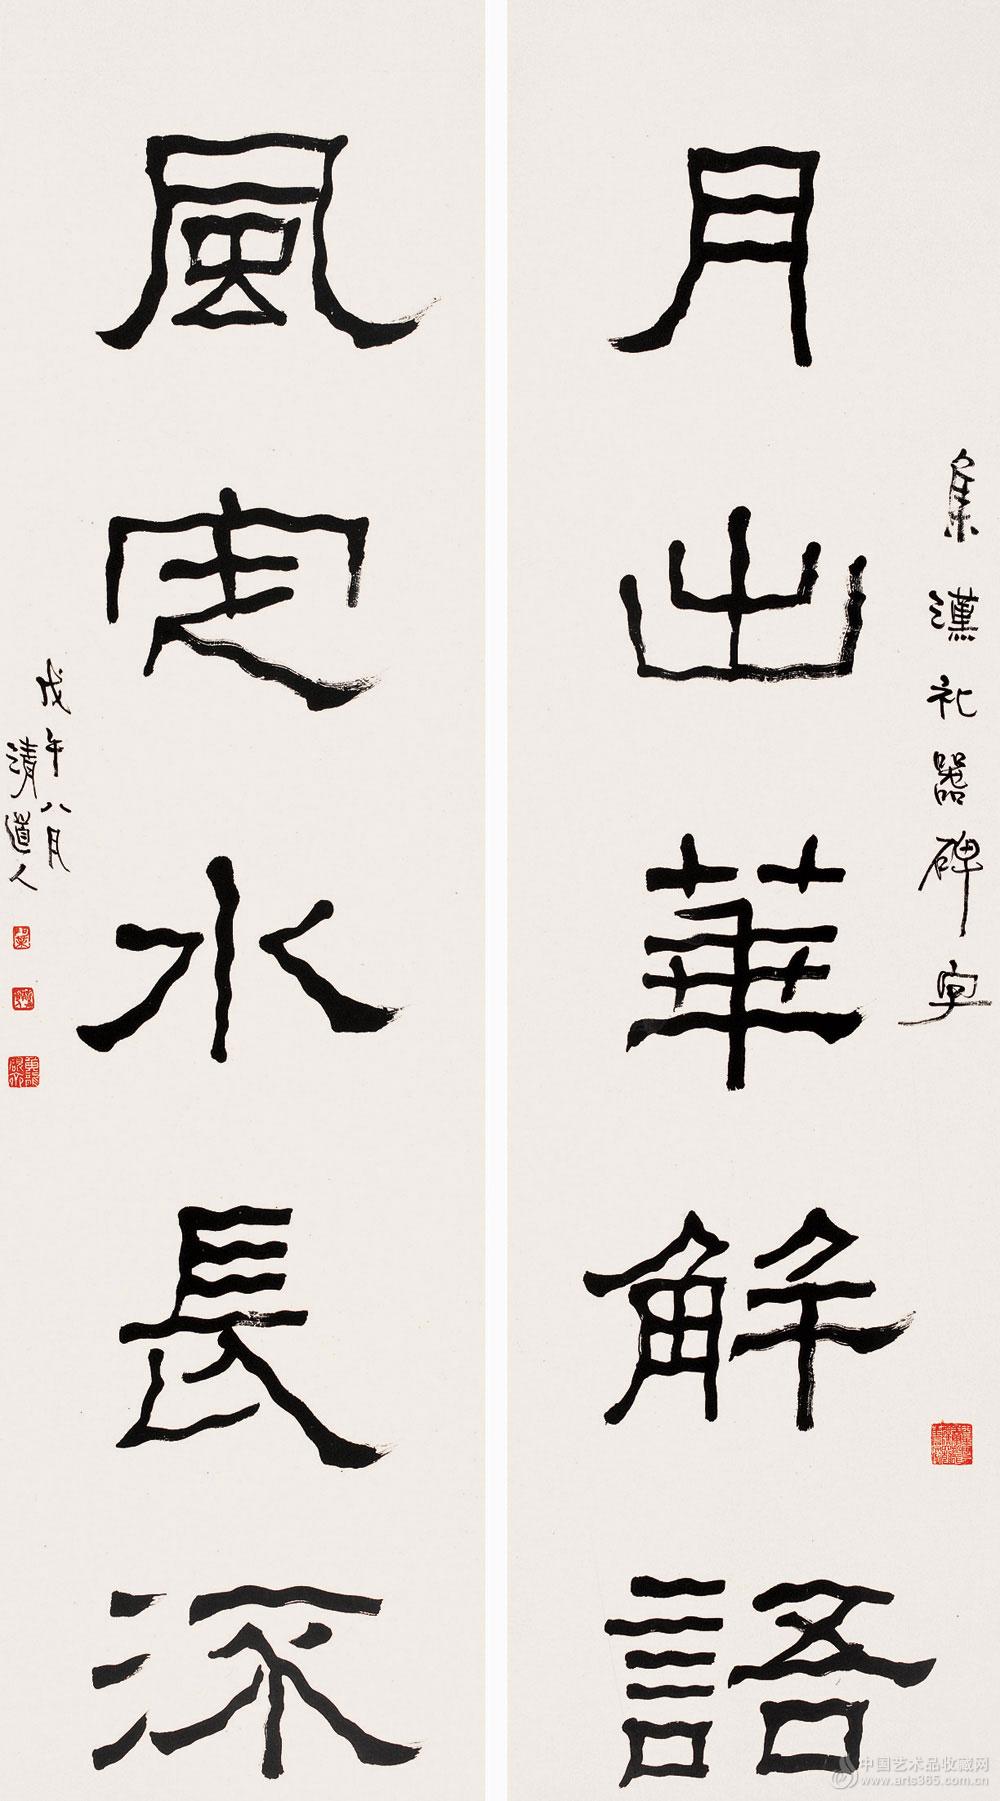 月出華解語
集漢礼器碑字
風定水長流
戊午八月
清道人
中国艺术品收藏网
www.arts365.com.cn